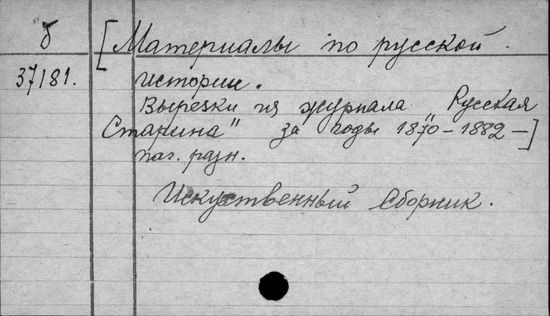 б
[Материалы по русской
37/81.
истории.
Вырезки из журнала "Русская
Старина" за годы 1870-1882-]
паг. разн.
Искуственный Сборник.